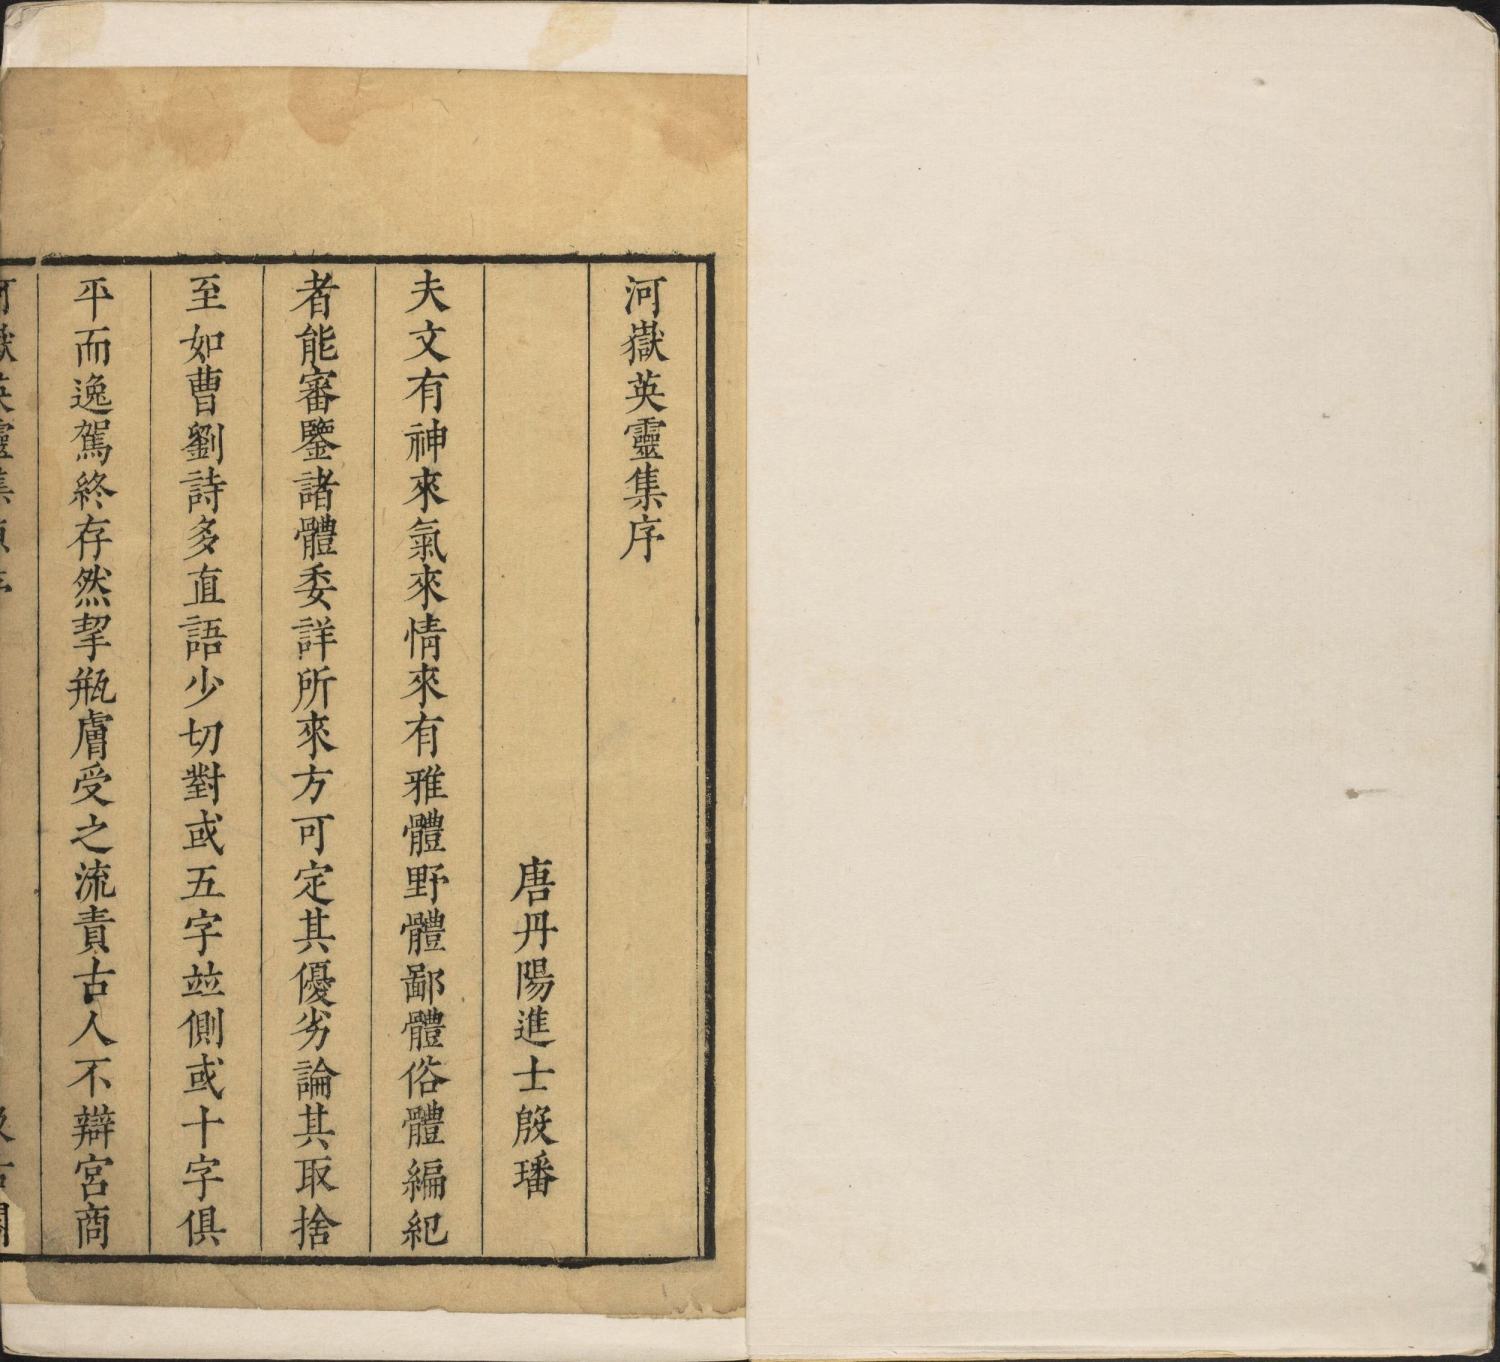 河嶽英靈集序
唐丹陽進士殷璠
夫文有神來氣來情來有雅體野體鄙體俗體編紀
者能審鑒諸體委詳所來方可定其優劣論其取捨
至如曹劉詩多直語少切對或五字並側或十字俱
平而逸駕終存然挈瓶膚受之流責古人不辯宮商
河嶽英靈集